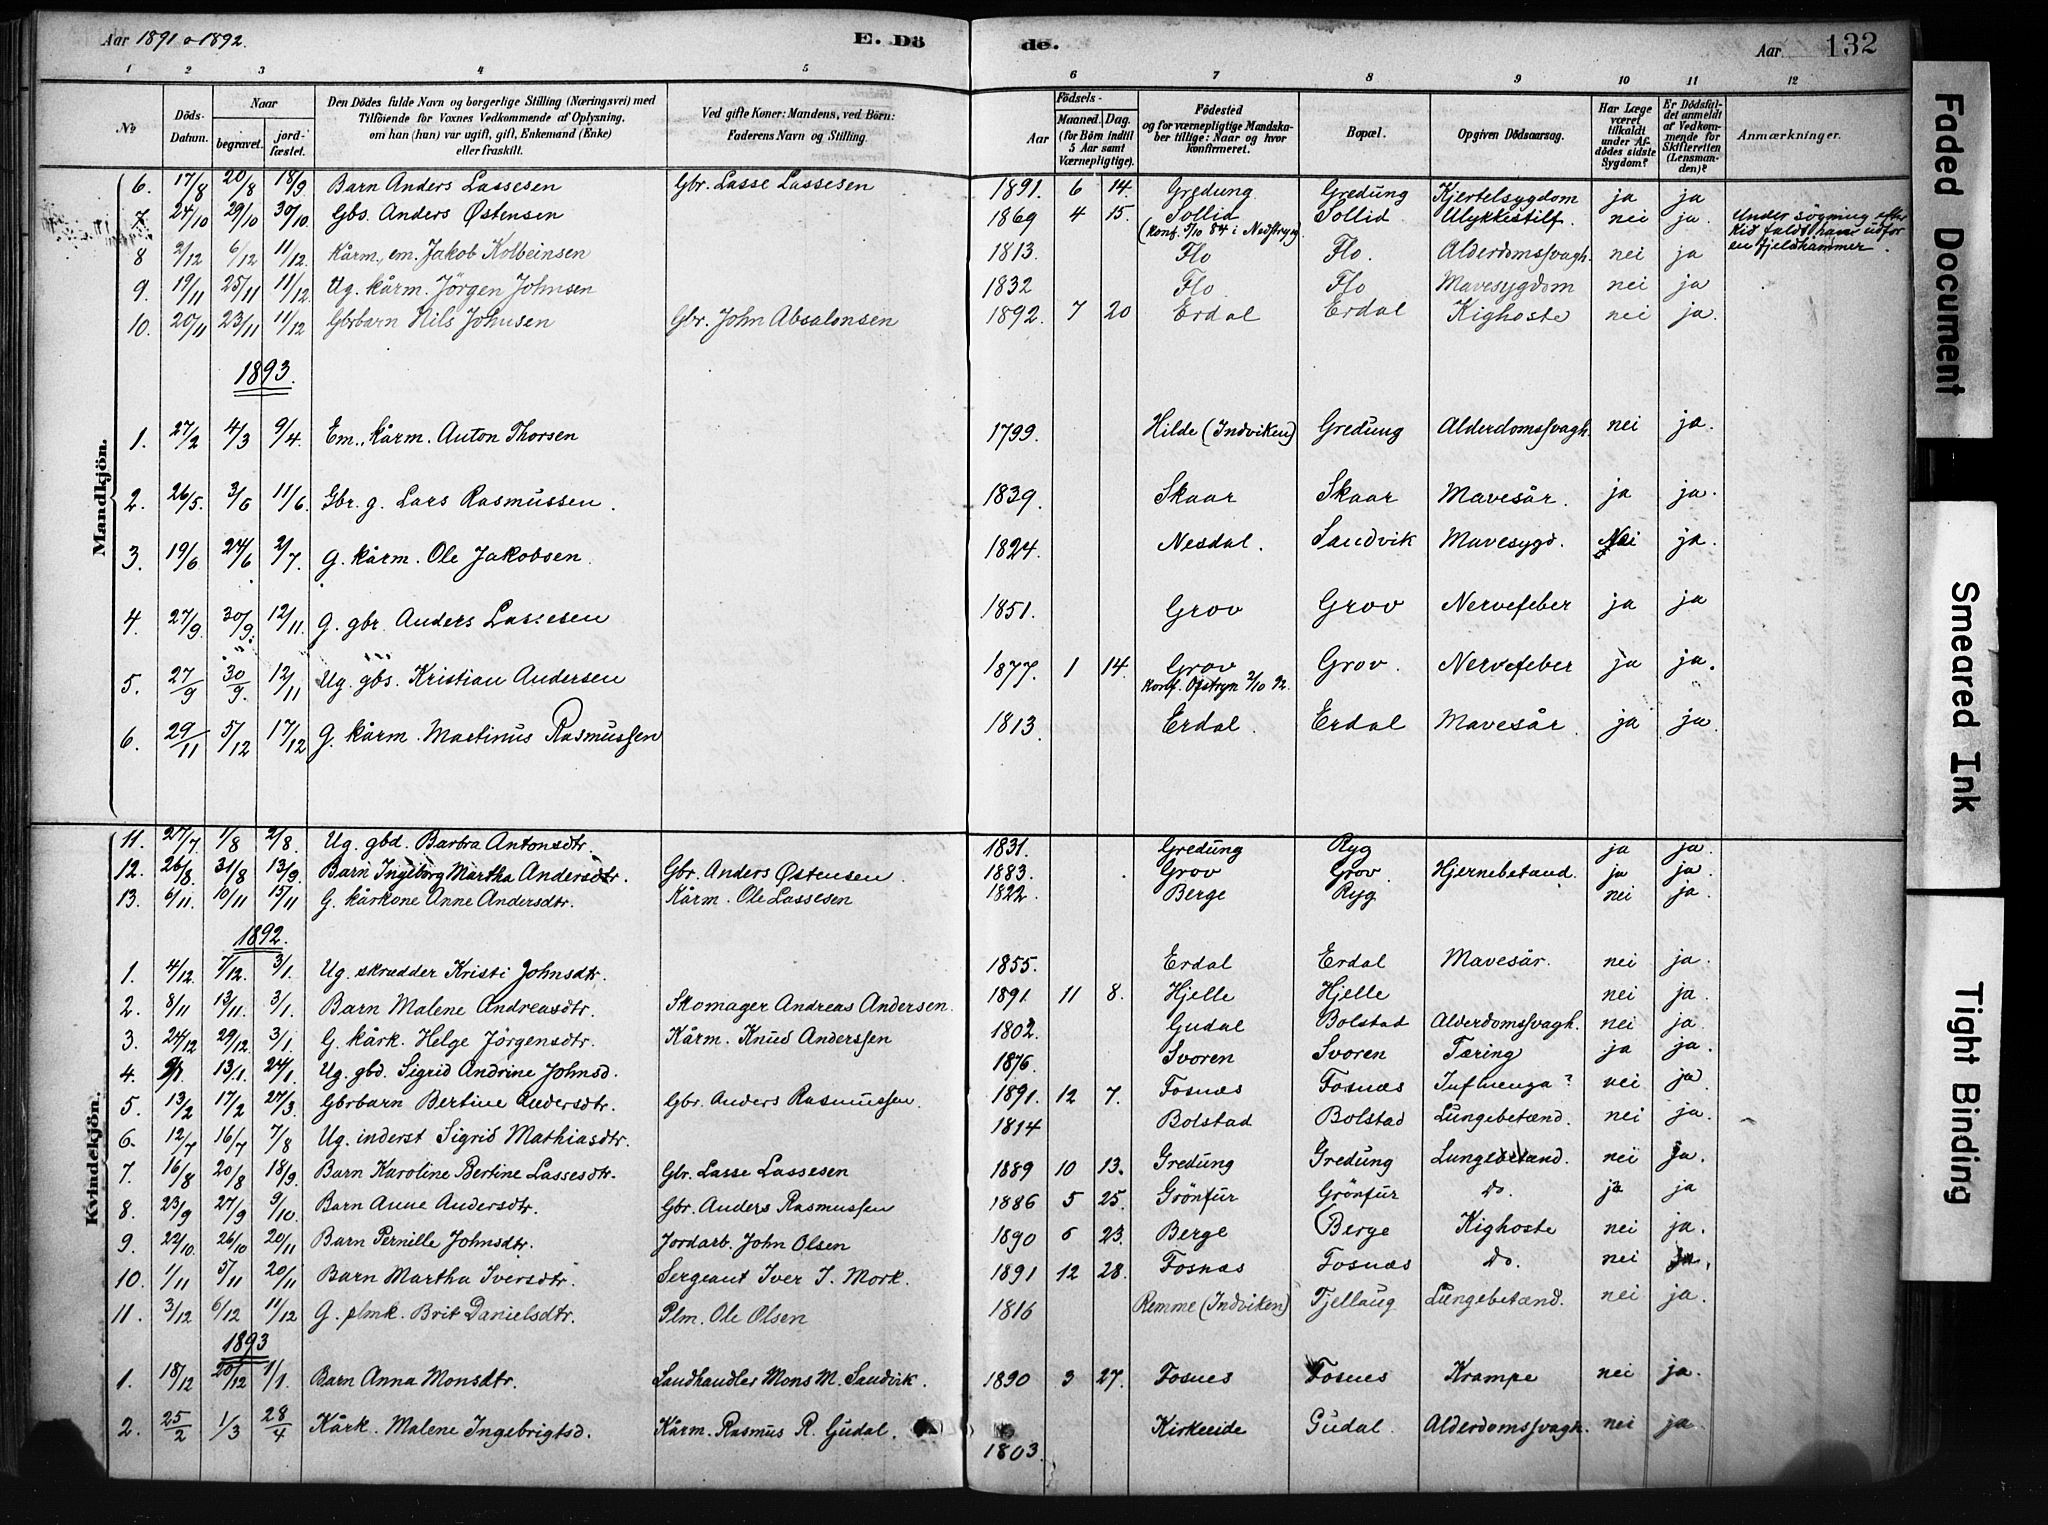 Aar 1891 o 1892. E. Dö de. Aar 132
1 2 3 4 5 6 7 8 9 10 11 12
No Döds-Datum. Naar begravet. jordfæstet. Den Dödes fulde Navn og borgerlige Stilling (Næringsvei) med Tilföiende for Voxnes Vedkommende af Oplysning, om han (hun) var ugift, gift, Enkemand (Enke) eller fraskilt. Ved gifte Koner: Mandens, ved Börn: Faderens Navn og Stilling. Födsels- Aar Maaned. Dag. (for Börn indtil 5 Aar samt Værnepligtige). Födested og for værnepligtige Mandskaber tillige: Naar og hvor konfirmeret. Bopæl. Opgiven Dödsaarsag. Har Læge været tilkaldt under Afdödes sidste Sygdom? Er Dödsfaldet anmeldt af Vedkommende for Skifteretten (Lensmanden)? Anmærkninger.
Mandkjön.
6. 17/8 20/8 18/9 Barn Anders Lassesen Gbr. Lasse Lassesen 1891. 6 14. Gredung Gredung Kjertelsygdom ja ja
7. 24/10 29/10 30/10. Gbs. Anders Østensen 1869 4 15. Sollid Sollid Ulykkestilf. nei ja.
(konf. 5/10 84 i Nedstryn)
Under søgning efter
kid faldt han udfor
en fjeldhammer.
8 2/12 6/12 11/12. Kårm., em. Jakob Kolbeinsen 1813. Flo Flo. Alderdomssvagh. nei ja
9. 19/11 25/11 11/12 Ug. kårm. Jörgen Johnsen 1832 Flo. Flo Mavesygdom nei ja
10. 20/11 23/11 11/12 Gbrbarn Nils Johnsen Gbr. John Absalonsen 1892. 7 20 Erdal Erdal Kighoste nei ja.
1893.
1. 27/2 4/3 9/4. Em., kårm. Anton Thorsen 1799. Hilde (Indviken) Gredung Alderdomssvagh. nei ja.
2. 26/5. 3/6 11/6. Gbr. g. Lars Rasmussen. 1839. Skaar Skaar Mavesår. ja ja.
3. 19/6 24/6 2/7. G. kårm. Ole Jakobsen. 1824. Nesdal. Sandvik Mavesygd. Nei ja.
4. 27/9. 30/9. 12/11. G. gbr. Anders Lassesen 1851. Grov Grov Nervefeber ja ja
5. 27/9 30/9. 12/11 Ug. gbs. Kristian Andersen 1877. 1 14. Grov Grov. Nervefeber ja ja.
Konf. Opstryn 2/10 92.
6. 29/11 5/12 17/12 G. kårm. Martinus Rasmussen 1813. Erdal. Erdal Mavesår. ja ja.
Kvindekjön.
11. 27/7 1/8 2/8. Ug. gbd. Barbra Antonsdtr. 1831. Gredung Ryg ja ja.
12. 26/8. 31/8 13/9. Barn Ingeborg Martha Andersdtr. Gbr. Anders Østensen. 1883. Grov Grov. Hjernebetænd. ja ja.
13. 6/11. 10/11 15/11 G. kårkone Anne Andersdtr. Kårm. Ole Lassesen 1822. Berge Ryg nei ja.
1892.
1. 4/12 7/12. 3/1. Ug. skrædder Kristi Johnsdtr. 1855. Erdal Erdal Mavesår. nei ja.
2. 8/11 13/11. 3/1. Barn Malene Andreasdtr. Skomager Andreas Andersen. 1891. 11 8. Hjelle Hjelle nei ja.
3. 24/12 29/12. 3/1. G. kårk. Helge Jörgensdtr. Kårm. Knud Anderssen 1802. Gudal Bolstad Alderdomssvagh. nei ja.
4. 9/1. 13/1. 24/1. Ug. gbd. Sigrid Andrine Johnsd. 1876. Svoren Svoren Tæring ja ja.
5. 13/2 17/2 27/3. Gbrbarn Bertine Andersdtr. Gbr. Anders Rasmussen. 1891. 12 7. Fosnæs Fosnæs Influenza? nei ja
6. 12/7 16/7 7/8 Ug. inderst Sigrid Mathiasdtr. 1814 Bolstad Bolstad Lungebetænd. nei ja.
7. 16/8 20/8 18/9. Barn Karoline Bertine Lassesdtr. Gbr. Lasse Lassesen 1889 10 13. Gredung Gredung Lungebetænd. nei ja.
8. 23/9 27/9 9/10. Barn Anne Andersdtr. Gbr. Anders Rasmussen 1886 5 25. Grönfur Grönfur Do. ja ja
9. 22/10. 26/10 20/11 Barn Pernille Johnsdtr. Jordarb. John Olsen 1890 6 23. Berge Berge Kighoste nei ja.
10. 1/11 5/11 20/11 Barn Martha Iversdtr. Sergeant Iver J. Mork. 1891 12 28. Fosnæs Fosnæs Do. nei ja.
11. 3/12 6/12 11/12 G. plmk. Brit Danielsdtr. Plm. Ole Olsen 1816 Remme (Indviken) Tjellaug Lungebetænd. nei ja.
1893
1. 18/12 20/12 1/1. Barn Anna Monsdtr. Landhandler Mons M. Sandvik. 1890 3 27. Fosnes Fosnes Krampe nei ja.
2. 25/2 1/3 28/4 Kårk. Malene Ingebrigtsd. Kårm. Rasmus R. Gudal. 1803. Kirkeeide Gudal. Alderdomssvagh. nei ja.
Faded Document
Smeared Ink
Tight Binding